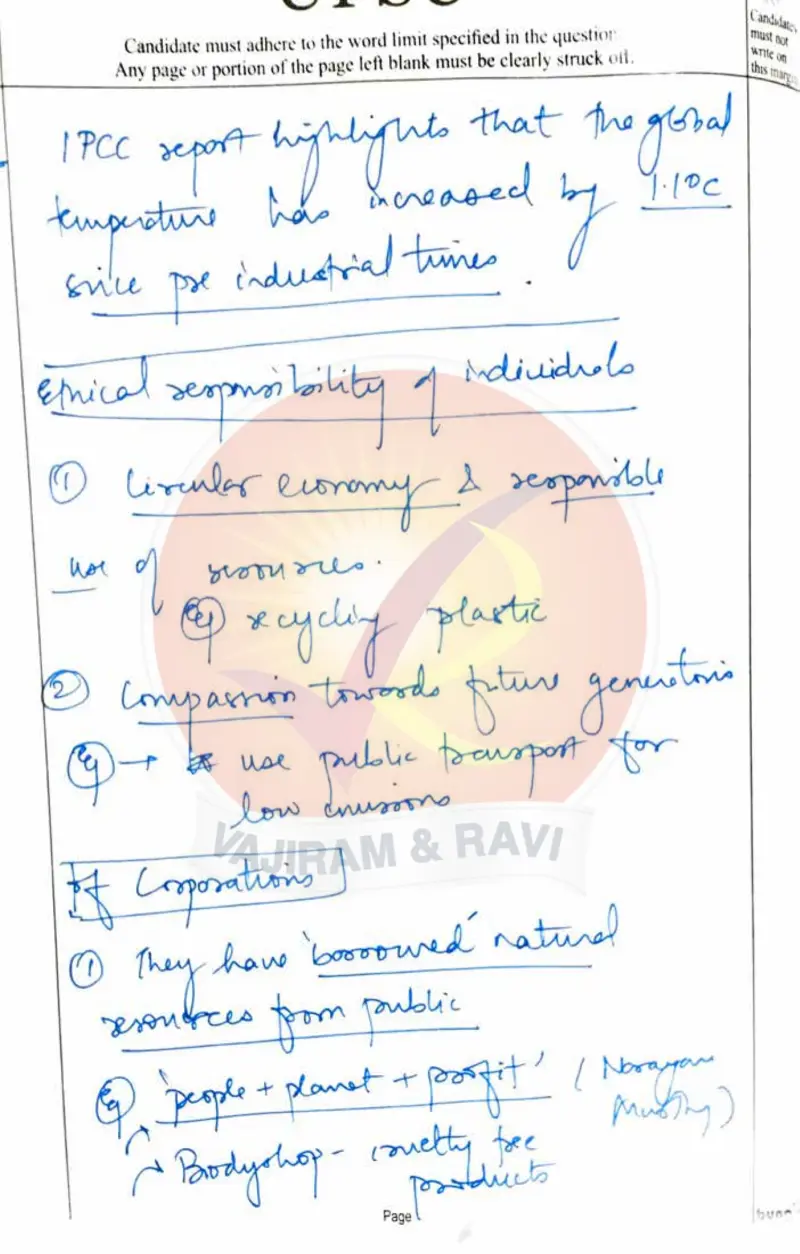 UPSC
Candidate must adhere to the word limit specified in the question
Any page or portion of the page left blank must be clearly struck off.
Candidates
must not
write on
this margin
IPCC report highlights that the global
temperature has increased by 1.1°C
since pre industrial times.
Ethical responsibility of individuals
① Circular economy & responsible
use of resources.
Eg recycling plastic
② Compassion towards future generations
Eg → use public transport for
low emissions
VAJIRAM & RAVI
Of Corporations
① They have 'borrowed' natural
resources from public
Eg 'people + planet + profit' (Narayan
Murthy)
→ Bodyshop - cruelty free
products
Page